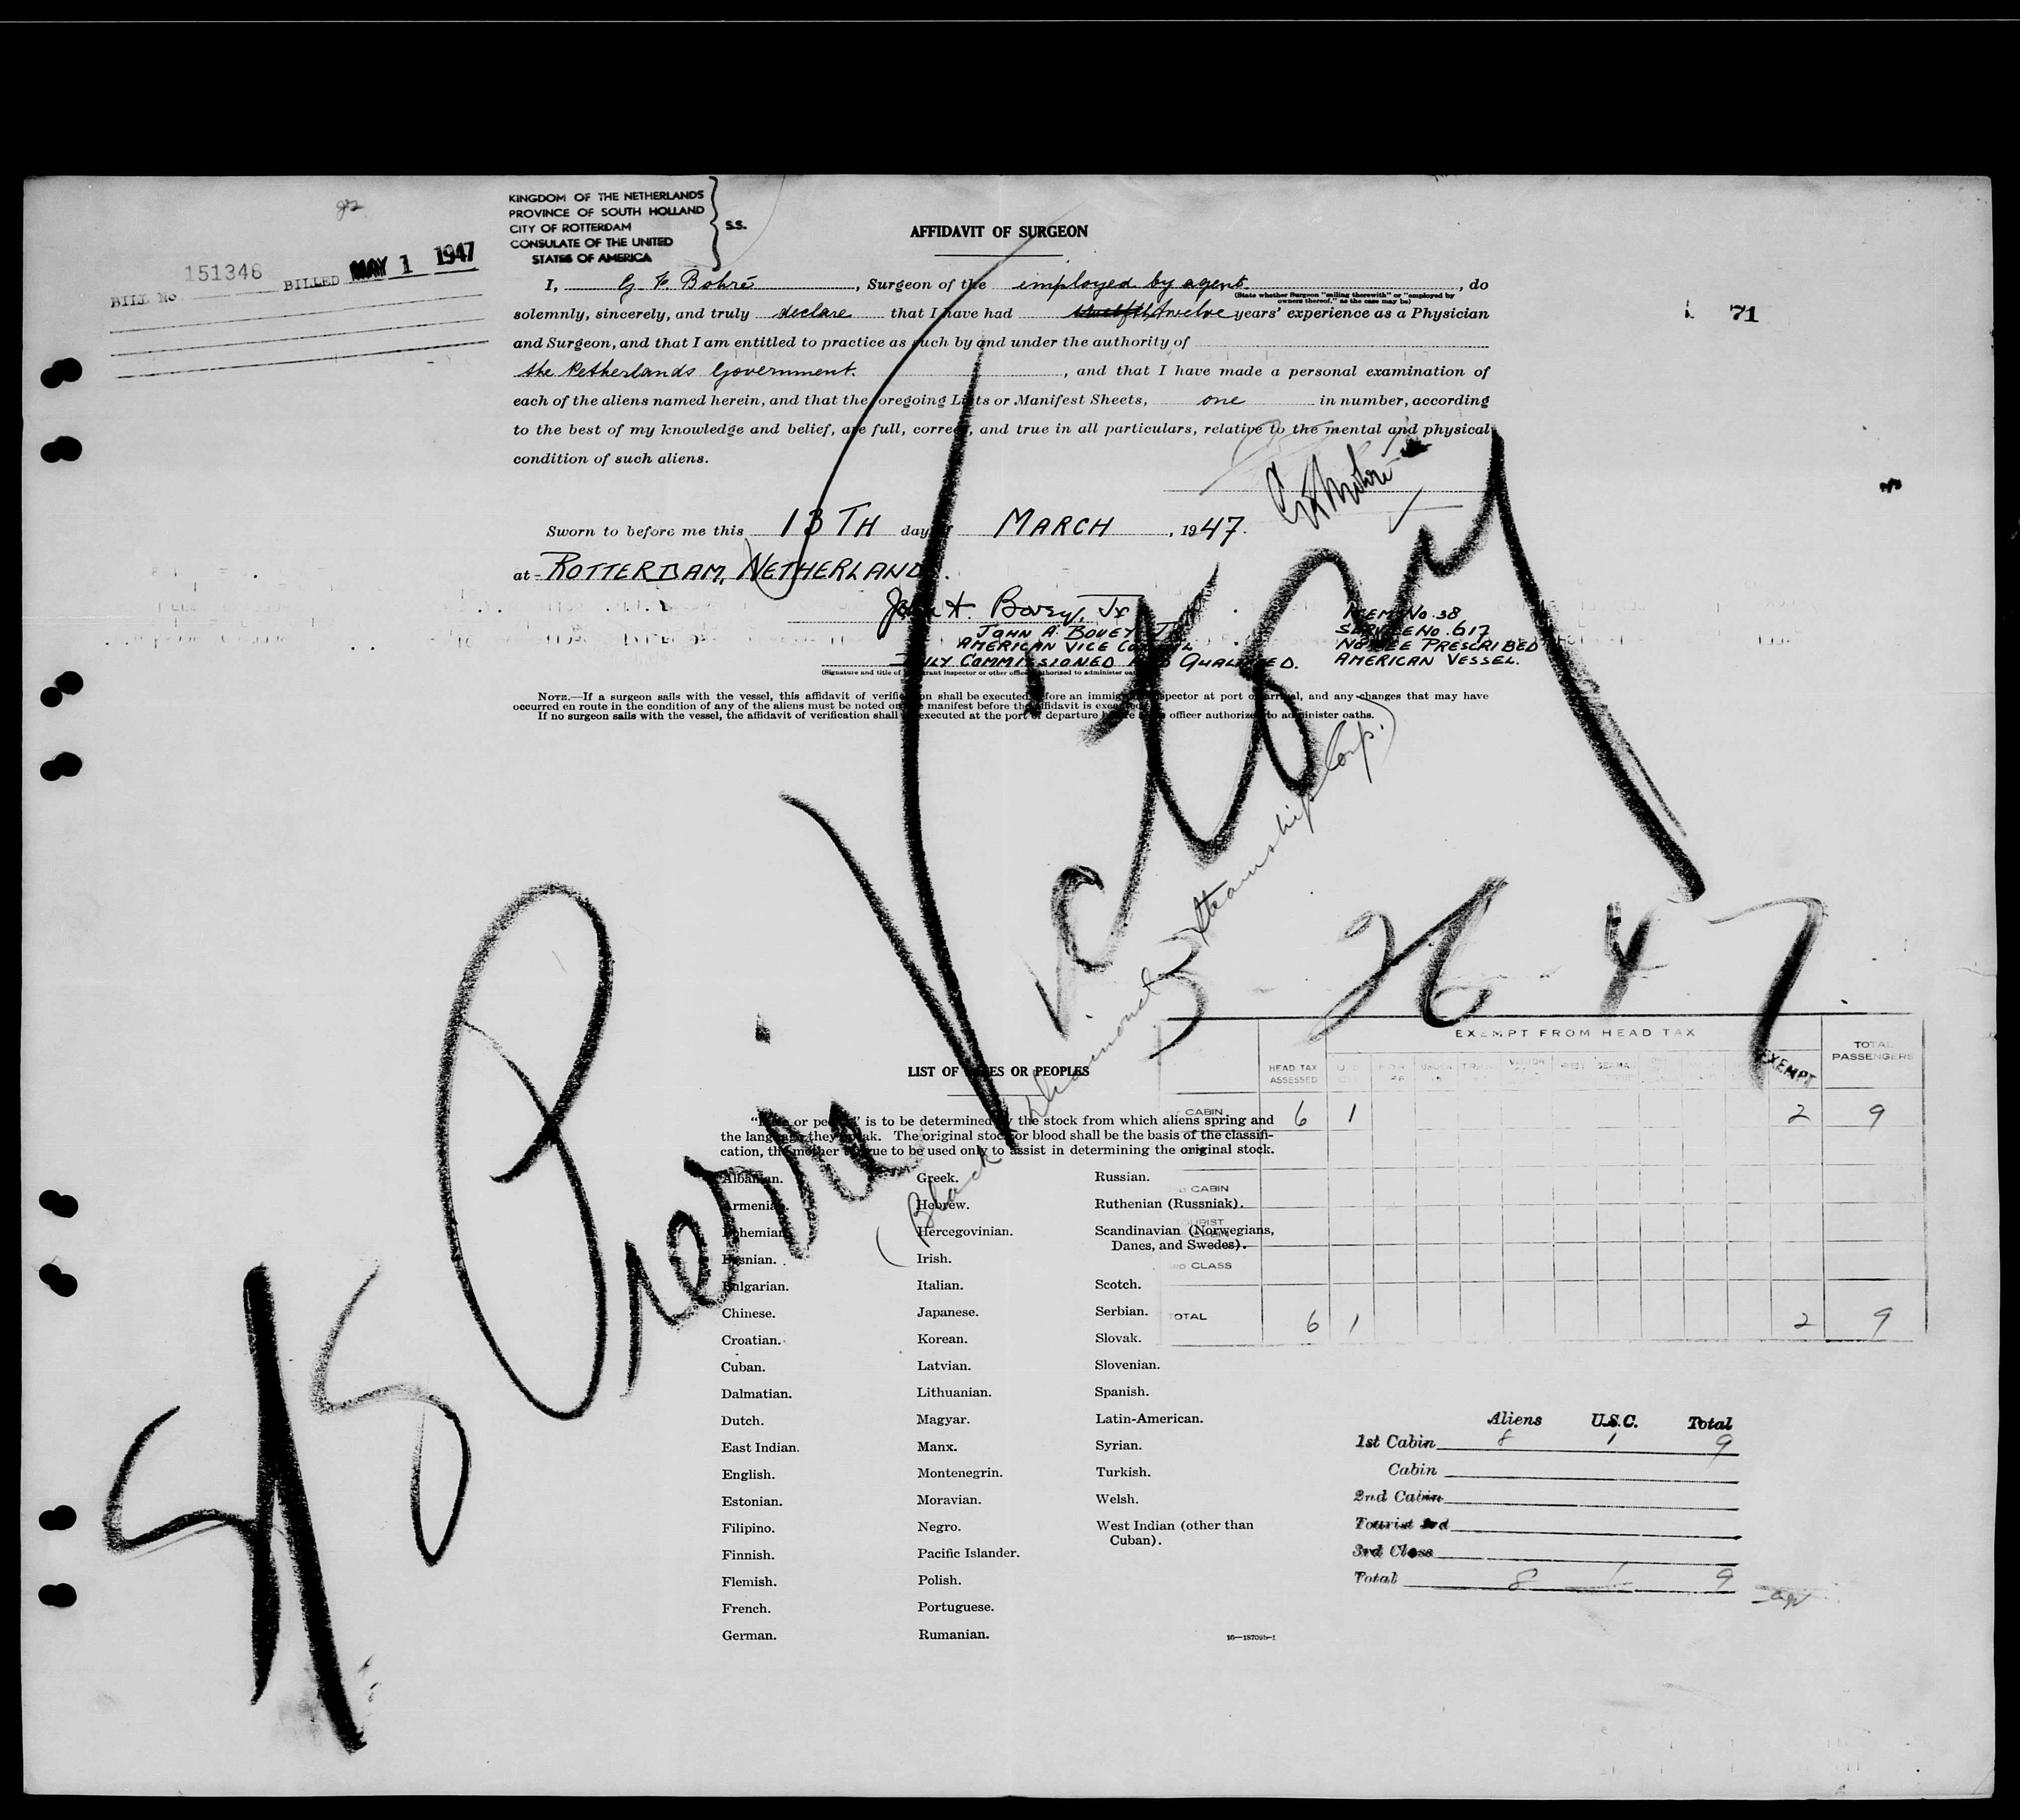 KINGDOM OF THE NETHERLANDS
PROVINCE OF SOUTH HOLLAND
CITY OF ROTTERDAM
CONSULATE OF THE UNITED
STATES OF AMERICA
S.S.
BILL No. 151346 BILLED MAY 1 1947
71
AFFIDAVIT OF SURGEON
I, G F. Bohré, Surgeon of the employed by agent, do
(State whether Surgeon "sailing therewith" or "employed by
owners thereof," as the case may be)
solemnly, sincerely, and truly declare that I have had twelve years' experience as a Physician
and Surgeon, and that I am entitled to practice as such by and under the authority of
the Netherlands Government., and that I have made a personal examination of
each of the aliens named herein, and that the foregoing Lists or Manifest Sheets, one in number, according
to the best of my knowledge and belief, are full, correct, and true in all particulars, relative to the mental and physical
condition of such aliens.
Sworn to before me this 13TH day of MARCH, 1947.
at ROTTERDAM, NETHERLANDS.
John A. Bovey, Jr
JOHN A. BOVEY JR
AMERICAN VICE CONSUL
DULY COMMISSIONED AND QUALIFIED.
(Signature and title of immigrant inspector or other officer authorized to administer oaths)
ITEM No. 38
SERVICE No. 617
NO FEE PRESCRIBED
AMERICAN VESSEL.
NOTE.—If a surgeon sails with the vessel, this affidavit of verification shall be executed before an immigrant inspector at port of arrival, and any changes that may have
occurred en route in the condition of any of the aliens must be noted on the manifest before the affidavit is executed.
If no surgeon sails with the vessel, the affidavit of verification shall be executed at the port of departure before an officer authorized to administer oaths.
S/S Pierre Victory
(Black Diamond Steamship Corp.)
3 - 26 47
LIST OF RACES OR PEOPLES
"Race or people" is to be determined by the stock from which aliens spring and
the language they speak. The original stock or blood shall be the basis of the classifi-
cation, the mother tongue to be used only to assist in determining the original stock.
Albanian.
Armenian.
Bohemian.
Bosnian.
Bulgarian.
Chinese.
Croatian.
Cuban.
Dalmatian.
Dutch.
East Indian.
English.
Estonian.
Filipino.
Finnish.
Flemish.
French.
German.
Greek.
Hebrew.
Hercegovinian.
Irish.
Italian.
Japanese.
Korean.
Latvian.
Lithuanian.
Magyar.
Manx.
Montenegrin.
Moravian.
Negro.
Pacific Islander.
Polish.
Portuguese.
Rumanian.
Russian.
Ruthenian (Russniak).
Scandinavian (Norwegians,
Danes, and Swedes).
Scotch.
Serbian.
Slovak.
Slovenian.
Spanish.
Latin-American.
Syrian.
Turkish.
Welsh.
West Indian (other than
Cuban).
EXEMPT FROM HEAD TAX
HEAD TAX ASSESSED EXEMPT TOTAL PASSENGERS
CABIN 6 1 2 9
CABIN
TOURIST
CLASS
TOTAL 6 1 2 9
Aliens U.S.C. Total
1st Cabin 8 1 9
Cabin
2nd Cabin
Tourist 3rd
3rd Class
Total 8 1 9